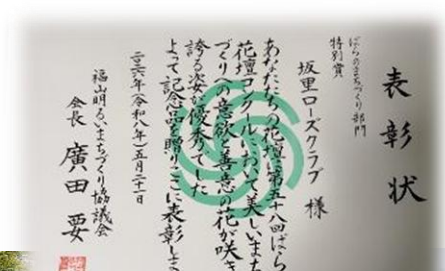 表彰状
ばらのまちづくり部門
特別賞
坂里ローズクラブ 様
あなたたちの花壇は第五十八回ばら
花壇コンクールにおいて美しいまち
づくりへの意欲と善意の花が咲き
誇る姿が優秀でした
よって記念品を贈りここに表彰しま
二〇二六年(令和八年)五月二十一日
福山明るいまちづくり協議会
会長 廣田 要